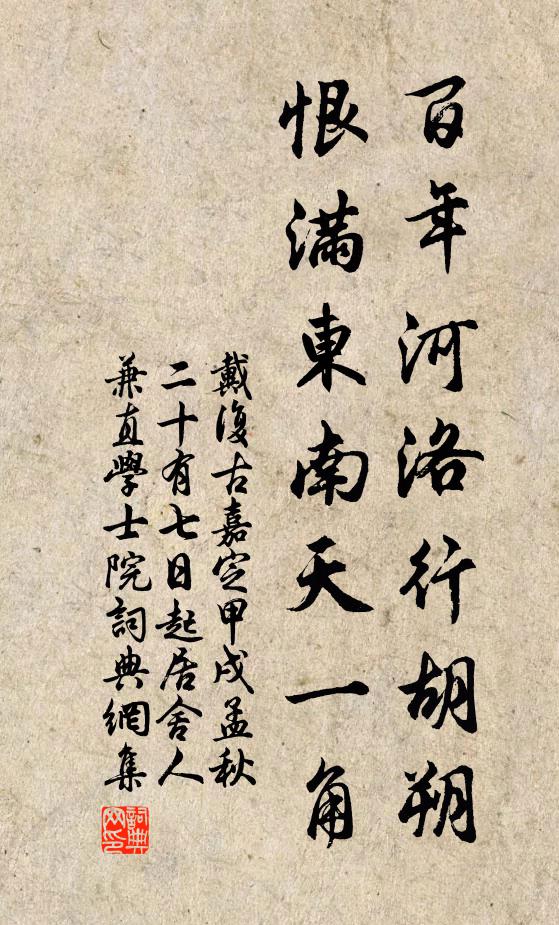 百年河洛行胡朔
恨滿東南天一角
戴復古嘉定甲戌孟秋
二十有七日起居舍人
兼直學士院詞典網集
詞典网印